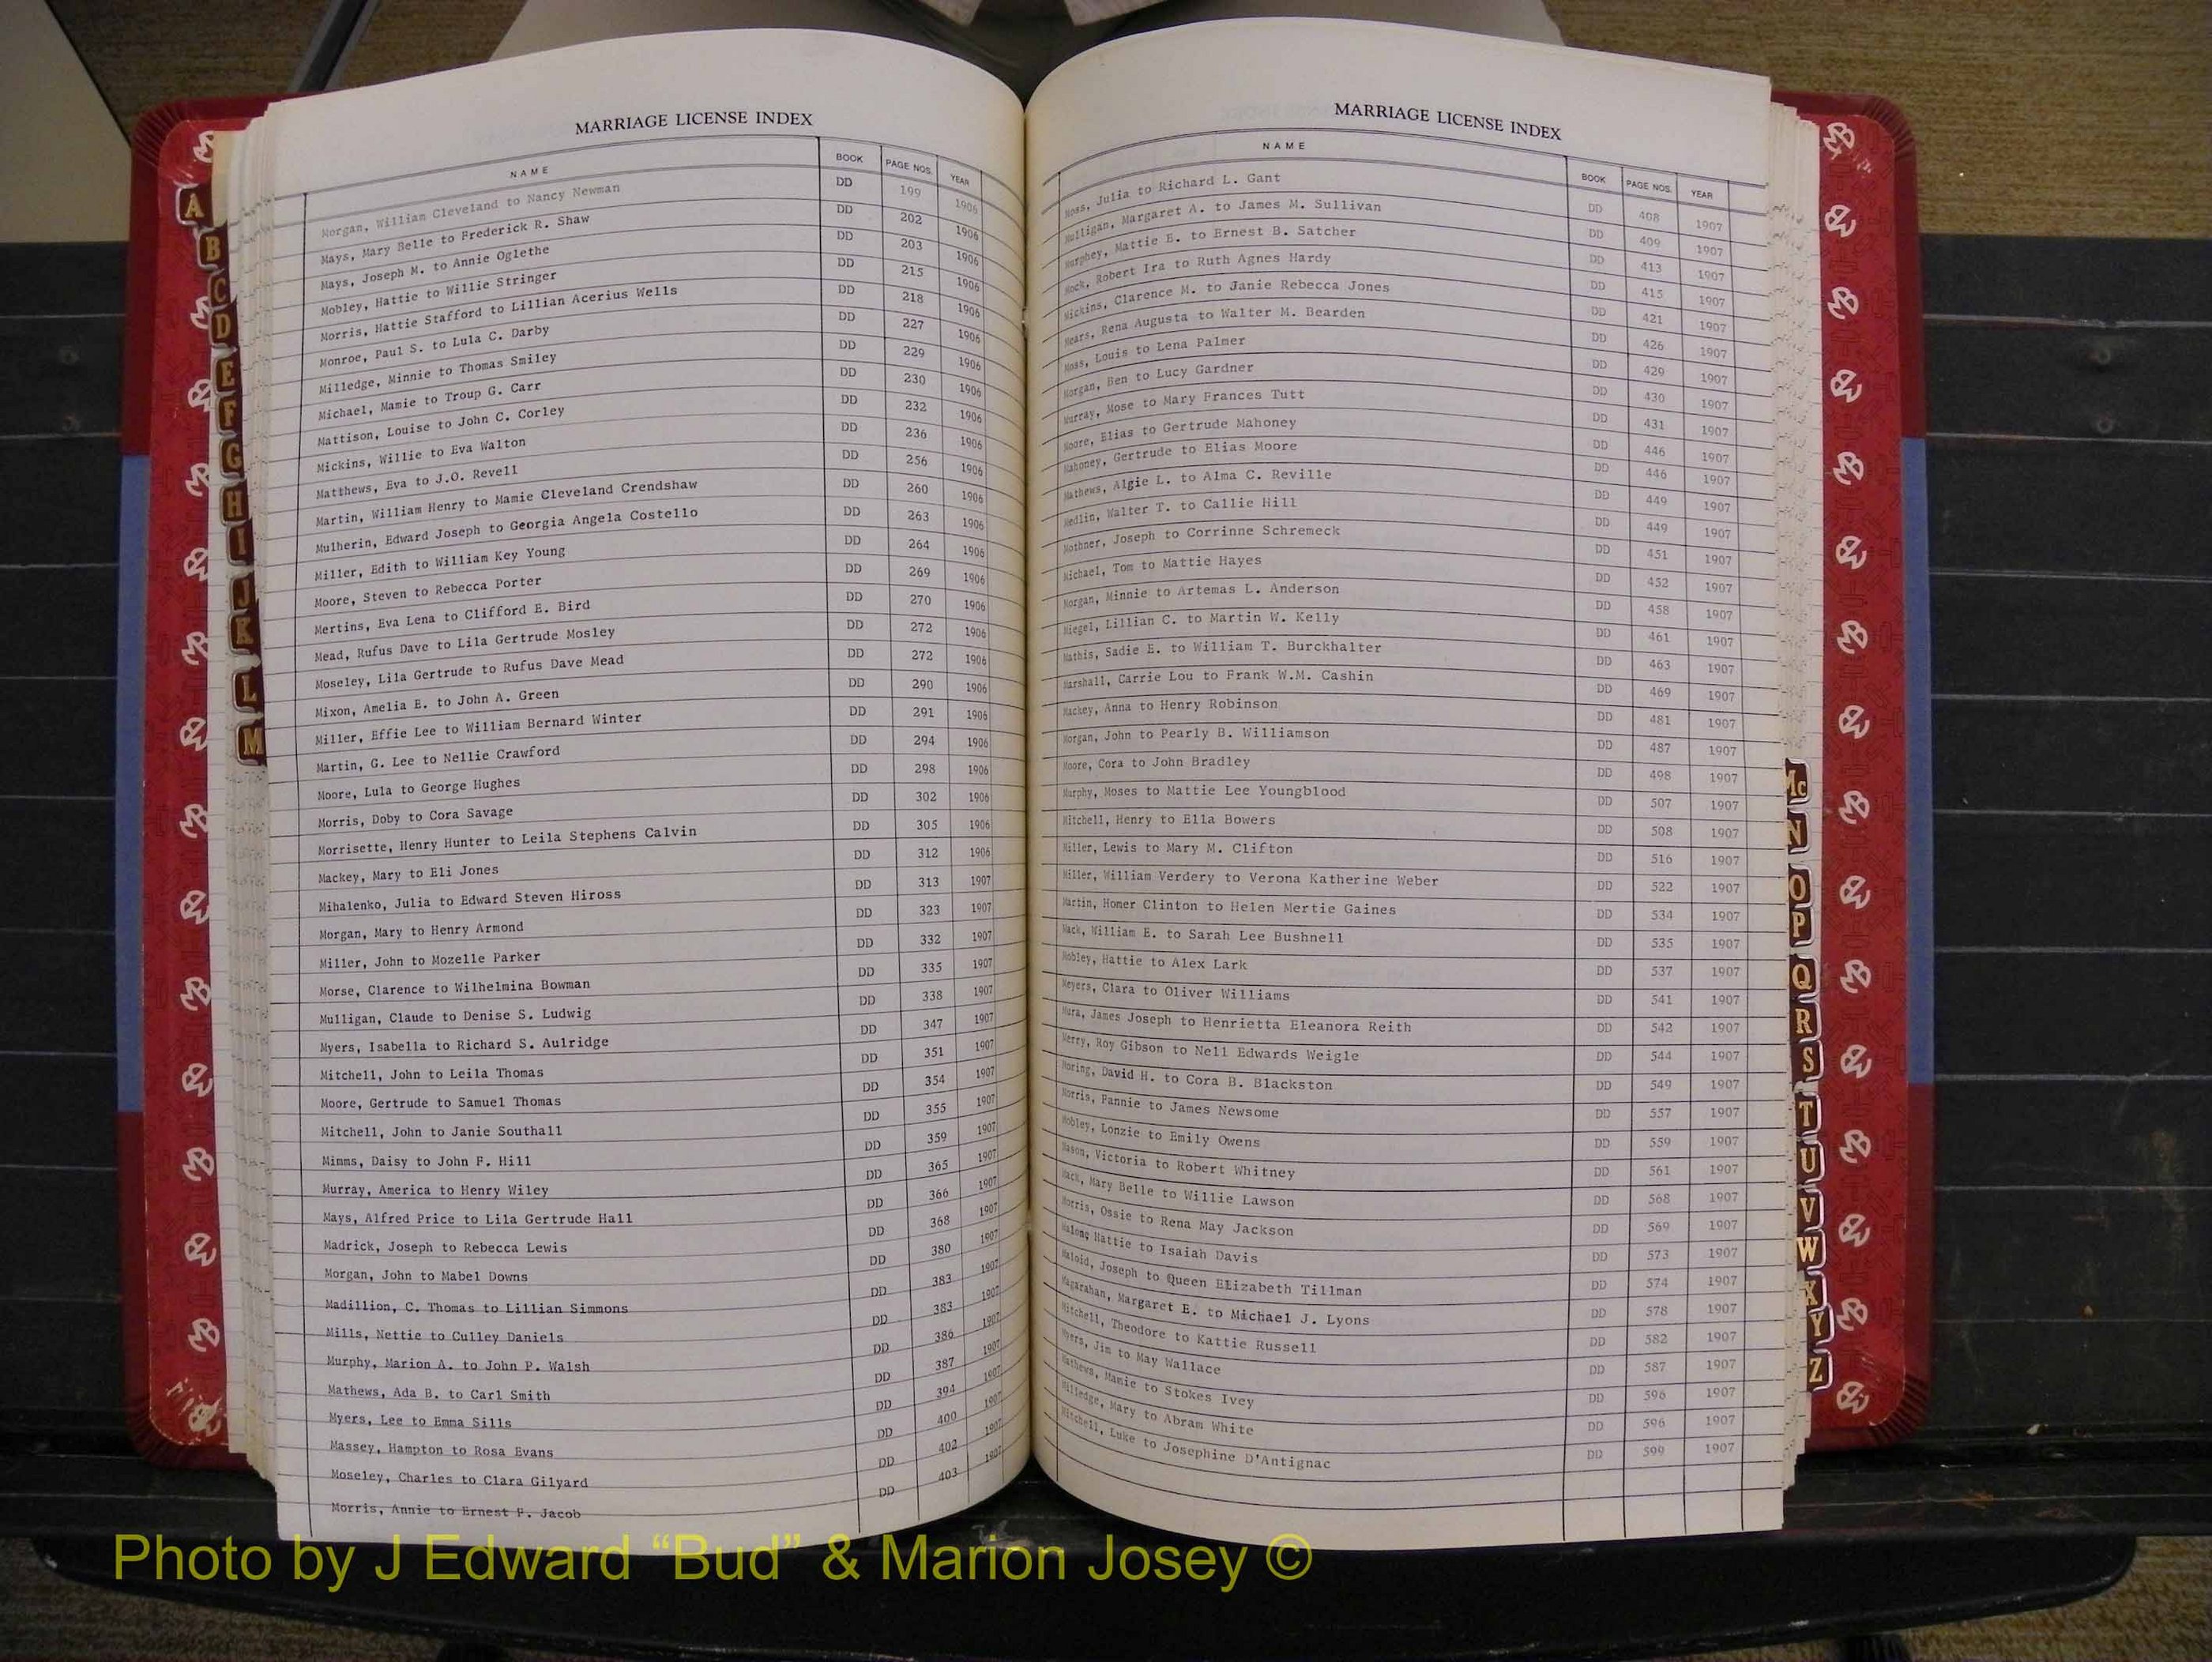 MARRIAGE LICENSE INDEX
NAME BOOK PAGE NOS. YEAR
Morgan, William Cleveland to Nancy Newman DD 199 1906
Mays, Mary Belle to Frederick R. Shaw DD 202 1906
Mays, Joseph M. to Annie Oglethe DD 203 1906
Mobley, Hattie to Willie Stringer DD 215 1906
Morris, Hattie Stafford to Lillian Acerius Wells DD 218 1906
Monroe, Paul S. to Lula C. Darby DD 227 1906
Milledge, Minnie to Thomas Smiley DD 229 1906
Michael, Mamie to Troup G. Carr DD 230 1906
Mattison, Louise to John C. Corley DD 232 1906
Mickins, Willie to Eva Walton DD 236 1906
Matthews, Eva to J.O. Revell DD 256 1906
Martin, William Henry to Mamie Cleveland Crendshaw DD 260 1906
Mulherin, Edward Joseph to Georgia Angela Costello DD 263 1906
Miller, Edith to William Key Young DD 264 1906
Moore, Steven to Rebecca Porter DD 269 1906
Mertins, Eva Lena to Clifford E. Bird DD 270 1906
Mead, Rufus Dave to Lila Gertrude Mosley DD 272 1906
Moseley, Lila Gertrude to Rufus Dave Mead DD 272 1906
Mixon, Amelia E. to John A. Green DD 290 1906
Miller, Effie Lee to William Bernard Winter DD 291 1906
Martin, G. Lee to Nellie Crawford DD 294 1906
Moore, Lula to George Hughes DD 298 1906
Morris, Doby to Cora Savage DD 302 1906
Morrisette, Henry Hunter to Leila Stephens Calvin DD 305 1906
Mackey, Mary to Eli Jones DD 312 1906
Mihalenko, Julia to Edward Steven Hiross DD 313 1907
Morgan, Mary to Henry Armond DD 323 1907
Miller, John to Mozelle Parker DD 332 1907
Morse, Clarence to Wilhelmina Bowman DD 335 1907
Mulligan, Claude to Denise S. Ludwig DD 338 1907
Myers, Isabella to Richard S. Aulridge DD 347 1907
Mitchell, John to Leila Thomas DD 351 1907
Moore, Gertrude to Samuel Thomas DD 354 1907
Mitchell, John to Janie Southall DD 355 1907
Mimms, Daisy to John F. Hill DD 359 1907
Murray, America to Henry Wiley DD 365 1907
Mays, Alfred Price to Lila Gertrude Hall DD 366 1907
Madrick, Joseph to Rebecca Lewis DD 368 1907
Morgan, John to Mabel Downs DD 380 1907
Madillion, C. Thomas to Lillian Simmons DD 383 1907
Mills, Nettie to Culley Daniels DD 383 1907
Murphy, Marion A. to John P. Walsh DD 386 1907
Mathews, Ada B. to Carl Smith DD 387 1907
Myers, Lee to Emma Sills DD 394 1907
Massey, Hampton to Rosa Evans DD 400 1907
Moseley, Charles to Clara Gilyard DD 402 1907
Morris, Annie to Ernest F. Jacob DD 403 1907
MARRIAGE LICENSE INDEX
NAME BOOK PAGE NOS. YEAR
Moss, Julia to Richard L. Gant DD 408 1907
Mulligan, Margaret A. to James M. Sullivan DD 409 1907
Murphey, Mattie E. to Ernest B. Satcher DD 413 1907
Mock, Robert Ira to Ruth Agnes Hardy DD 415 1907
Mickins, Clarence M. to Janie Rebecca Jones DD 421 1907
Mears, Rena Augusta to Walter M. Bearden DD 426 1907
Moss, Louis to Lena Palmer DD 429 1907
Morgan, Ben to Lucy Gardner DD 430 1907
Murray, Mose to Mary Frances Tutt DD 431 1907
Moore, Elias to Gertrude Mahoney DD 446 1907
Mahoney, Gertrude to Elias Moore DD 446 1907
Mathews, Algie L. to Alma C. Reville DD 449 1907
Medlin, Walter T. to Callie Hill DD 449 1907
Mothner, Joseph to Corrinne Schremeck DD 451 1907
Michael, Tom to Mattie Hayes DD 452 1907
Morgan, Minnie to Artemas L. Anderson DD 458 1907
Miegel, Lillian C. to Martin W. Kelly DD 461 1907
Mathis, Sadie E. to William T. Burckhalter DD 463 1907
Marshall, Carrie Lou to Frank W.M. Cashin DD 469 1907
Mackey, Anna to Henry Robinson DD 481 1907
Morgan, John to Pearly B. Williamson DD 487 1907
Moore, Cora to John Bradley DD 498 1907
Murphy, Moses to Mattie Lee Youngblood DD 507 1907
Mitchell, Henry to Ella Bowers DD 508 1907
Miller, Lewis to Mary M. Clifton DD 516 1907
Miller, William Verdery to Verona Katherine Weber DD 522 1907
Martin, Homer Clinton to Helen Mertie Gaines DD 534 1907
Mack, William E. to Sarah Lee Bushnell DD 535 1907
Mobley, Hattie to Alex Lark DD 537 1907
Meyers, Clara to Oliver Williams DD 541 1907
Mura, James Joseph to Henrietta Eleanora Reith DD 542 1907
Merry, Roy Gibson to Nell Edwards Weigle DD 544 1907
Moring, David H. to Cora B. Blackston DD 549 1907
Morris, Fannie to James Newsome DD 557 1907
Mobley, Lonzie to Emily Owens DD 559 1907
Mason, Victoria to Robert Whitney DD 561 1907
Mack, Mary Belle to Willie Lawson DD 568 1907
Morris, Ossie to Rena May Jackson DD 569 1907
Malone Hattie to Isaiah Davis DD 573 1907
Maloid, Joseph to Queen Elizabeth Tillman DD 574 1907
Magarahan, Margaret E. to Michael J. Lyons DD 578 1907
Mitchell, Theodore to Kattie Russell DD 582 1907
Myers, Jim to May Wallace DD 587 1907
Mathews, Mamie to Stokes Ivey DD 596 1907
Milledge, Mary to Abram White DD 596 1907
Mitchell, Luke to Josephine D'Antignac DD 599 1907
A
B
C
D
E
F
G
H
I
J
K
L
M
Mc
N
O
P
Q
R
S
T
U
V
W
X
Y
Z
Photo by J Edward “Bud” & Marion Josey ©